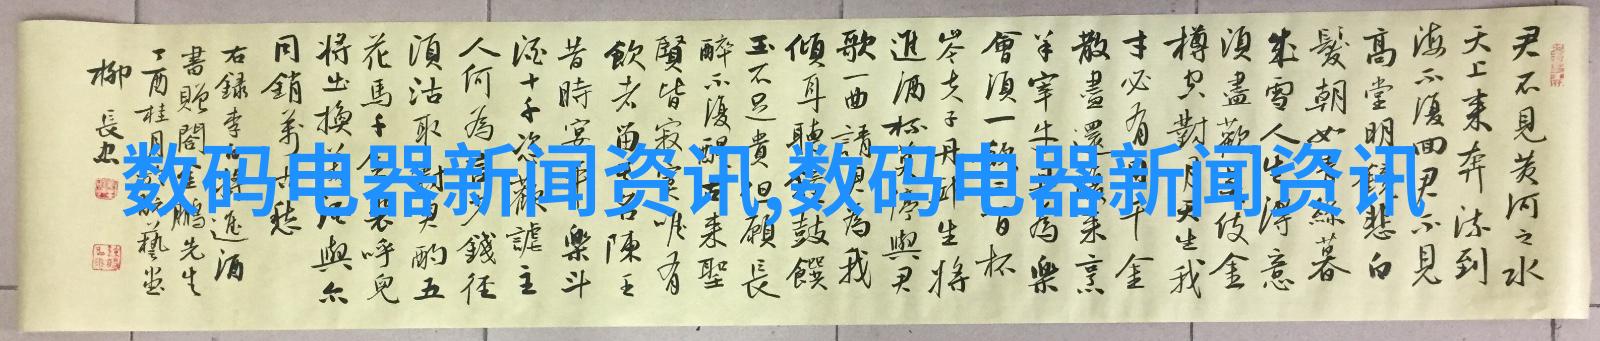 君不見黄河之水
天上来奔流到
海不復回君不見
高堂明鏡悲白
髮朝如青絲暮
成雪人生得意
須盡歡使金
樽空對月天生我
才必有用千金
散盡還復来烹
羊宰牛且為樂
會須一飲三百杯
岑夫子丹邱生將
進酒杯莫停與君
歌一曲請君為我
傾耳聽鐘鼓饌
玉不足貴但願長
醉不復醒古来聖
賢皆寂寞唯有
飲者留其名陳王
昔時宴平樂斗
酒十千恣歡謔主
人何為言少錢徑
須沽取對君酌五
花馬千金裘呼兒
将出換美酒與尔
同銷萬古愁
右録李白將進酒
書贈閣金鵬先生
丁酉桂月藝堂
柳長忠
数码电器新闻资讯,数码电器新闻资讯